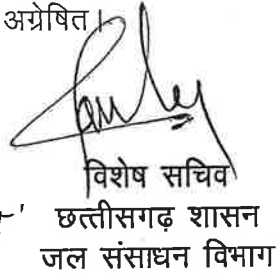 अग्रेषित।
विशेष सचिव
छत्तीसगढ़ शासन
जल संसाधन विभाग